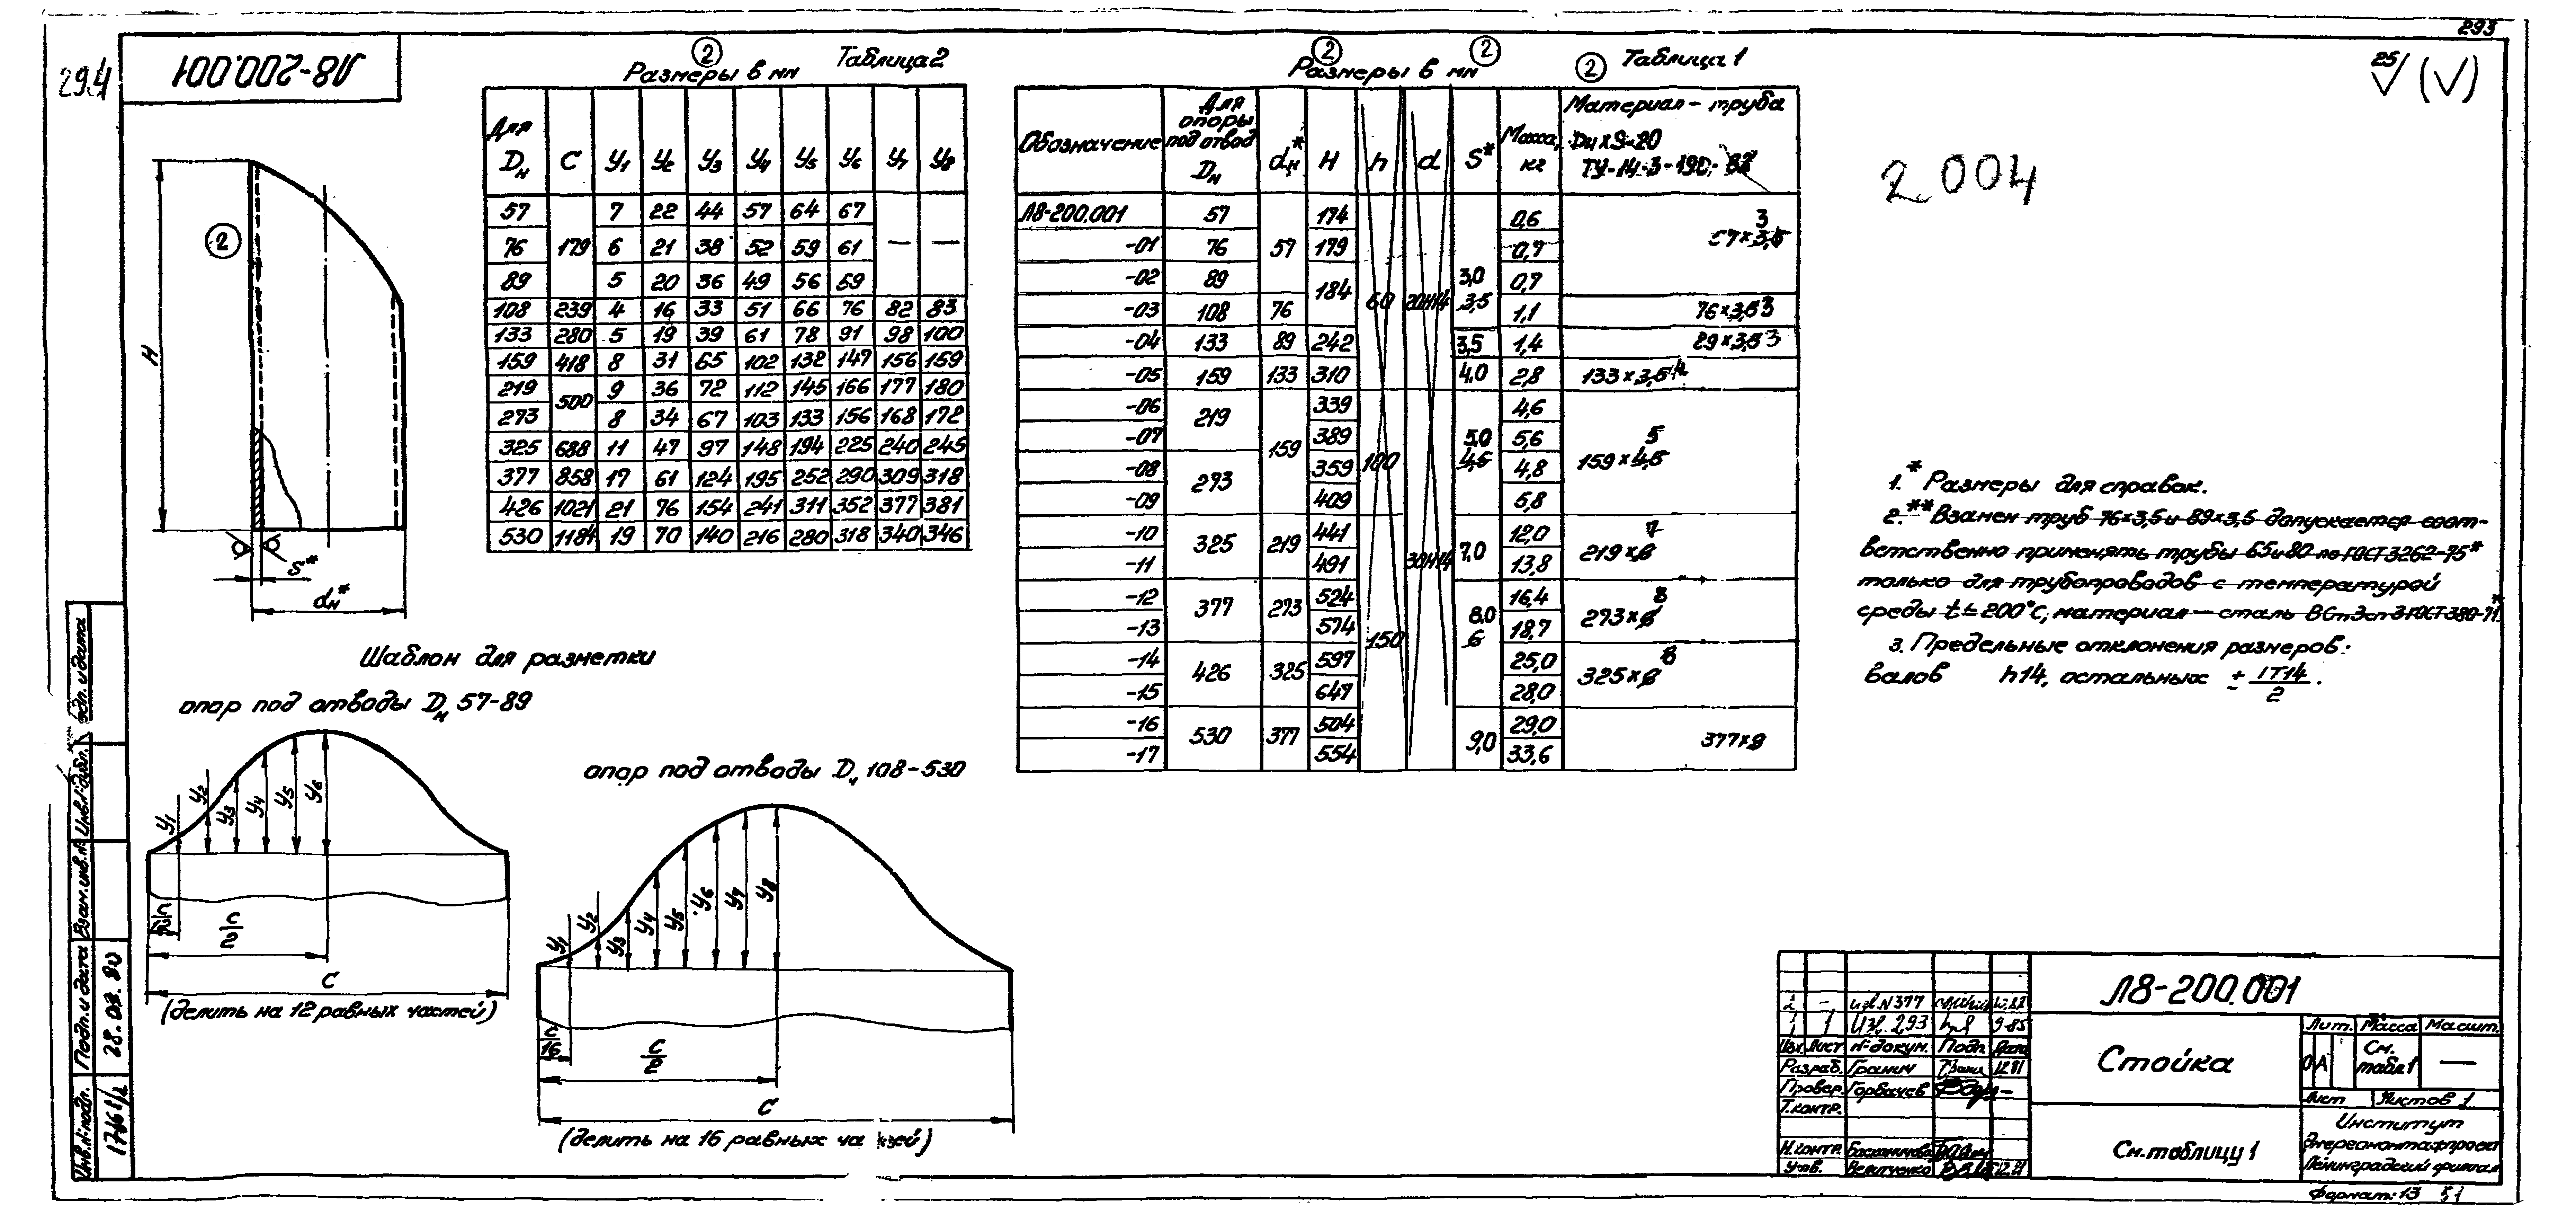 293
294
Л8-200.001
2
Размеры в мм Таблица 2
Для Dн C У1 У2 У3 У4 У5 У6 У7 У8
57 179 7 22 44 57 64 67 — —
76 6 21 38 52 59 61
89 5 20 36 49 56 59
108 239 4 16 33 51 66 76 82 83
133 280 5 19 39 61 78 91 98 100
159 418 8 31 65 102 132 147 156 159
219 500 9 36 72 112 145 166 177 180
273 8 34 67 103 133 156 168 172
325 688 11 47 97 148 194 225 240 245
377 858 17 61 124 195 252 290 309 318
426 1021 21 76 154 241 311 352 377 381
530 1184 19 70 140 216 280 318 340 346
2 2 2
Размеры в мм Таблица 1
Обозначение Для опоры под отвод Dн dн* H h d S* Масса, кг Материал - труба
Dн×S-20
ТУ-14-3-190-82
Л8-200.001 57 57 174 60 20H14 3,0 3,5 0,6 57×3,5 3
-01 76 179 0,7
-02 89 184 0,7
-03 108 76 1,1 76×3,5 3
-04 133 89 242 3,5 1,4 89×3,5 3
-05 159 133 310 4,0 2,8 133×3,5 4
-06 219 159 339 100 30H14 5,0 4,5 4,6 159×4,5 5
-07 389 5,6
-08 273 359 4,8
-09 409 5,8
-10 325 219 441 150 7,0 12,0 219×6 7
-11 491 13,8
-12 377 273 524 8,0 6 16,4 273×6 8
-13 574 18,7
-14 426 325 597 25,0 325×6 8
-15 647 28,0
-16 530 377 504 9,0 29,0 377×9
-17 554 33,6
25 (√)
2004
2
H
S*
dн*
1.* Размеры для справок.
2.** Взамен труб 76×3,5 и 89×3,5 допускается соот-
ветственно применять трубы 65 и 80 по ГОСТ 3262-75*
только для трубопроводов с температурой
среды t≤200°C, материал — сталь ВСт3сп3 ГОСТ 380-71*.
3. Предельные отклонения размеров:
валов h14, остальных ± IT14/2.
Шаблон для разметки
опор под отводы Dн 57-89
У1 У2 У3 У4 У5 У6
C/12
C/2
C
(делить на 12 равных частей)
опор под отводы Dн 108-530
У1 У2 У3 У4 У5 У6 У7 У8
C/16
C/2
C
(делить на 16 равных ча
Инв.№ подл. Подп. и дата Взам.инв.№ Инв.№ дубл. Подп. и дата
17461/2 28.03.80
2 - изв.N377
1 1 Изв. 293 9-85
Изм. Лист №докум. Подп. Дата
Разраб. Гранич 12.81
Провер. Горбачев
Т.контр.
Н.контр.
Утв. 12.81
Л8-200.001
Стойка
См. таблицу 1
Лит. Масса Масшт.
О А См. табл.1 —
Лист Листов 1
Институт
Энергомонтажпроект
Ленинградский филиал
Формат: 13 51